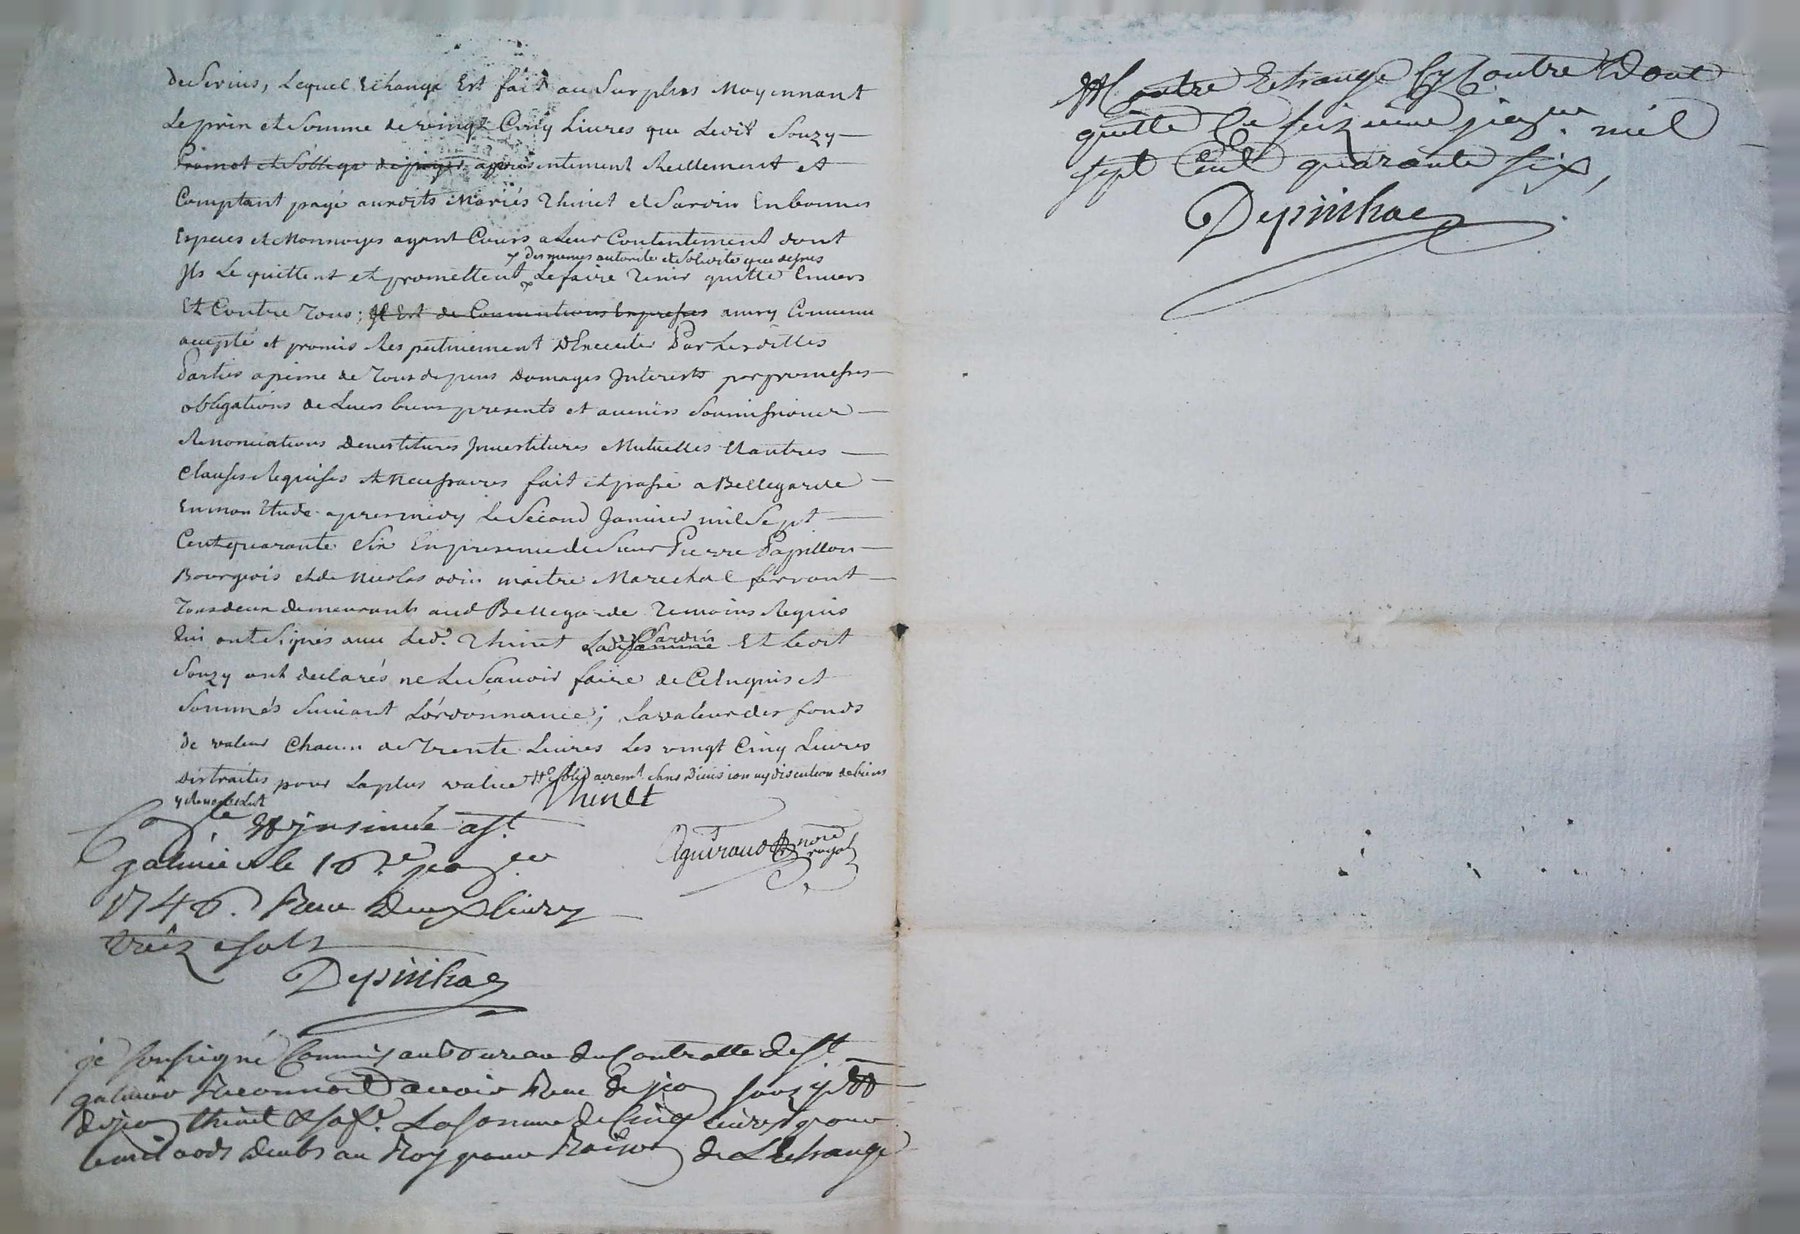 de Servins, Lequel Echange Est fait au Surplus Moyennant
Le prin et Somme de vingt Cinq Livres que Ledit Souzy
promet et s'oblige de payer apresentement Reellement et
Comptant payé auxdits Mariés Thinet et Sardin En bonnes
Especes et Monnoyes ayant Cours a Leur Contentement dont
des memes autorité et solidité que dessus
Ils Le quittent et promettent Le faire Tenir quitte Envers
Et Contre Tous; Il Est de Conventions Expresses ainsy Convenu
accepté et promis Respectivement D'Executer Par Lesdittes
Parties a peine de Tous depens Domages Interests par promesses
obligations de Leurs biens presents et avenirs Soumissions
Renonciations Devestitures Investitures Mutuelles Et autres
Clauses Requises et Necessaires fait et passé a Bellegarde
En mon Etude apres midy Le Second Janvier mil Sept
Cent quarante Six En presence de Sieur Pierre Papillon
Bourgeois et de Nicolas odin maitre Marechal ferrant
Tous deux demeurants aud Bellegarde Temoins Requis
Qui ont Signés avec Led. Thinet Ladte Sardin femme Et Ledit
Souzy ont declarés ne Le Scavoir faire de Ce Enquis et
Sommés Suivant L'ordonnance; La valeur des fonds
de valeur Chacun de Trente Livres Les vingt Cinq Livres
distraites pour La plus value solidairemt Sans Division ny discution de biens
Thinet
Conlé & insinué a St
galmier le 16e janver
1746. Reçu Deux livres
treize sols
Aguiraud nore royal
Depinhac
je soussigné Commis au Bureau du Controlle de St
galmier Reconnoit avoir Reçu de jean souzy
de jean thinet & sa fe. La Somme de Cinq livres pour
le mi lods deubs au Roy pour Raison de L'echange
Contre Echange Cy Contre Dont
quitte Ce seizieme janver mil
sept Cent quarante six,
Depinhac